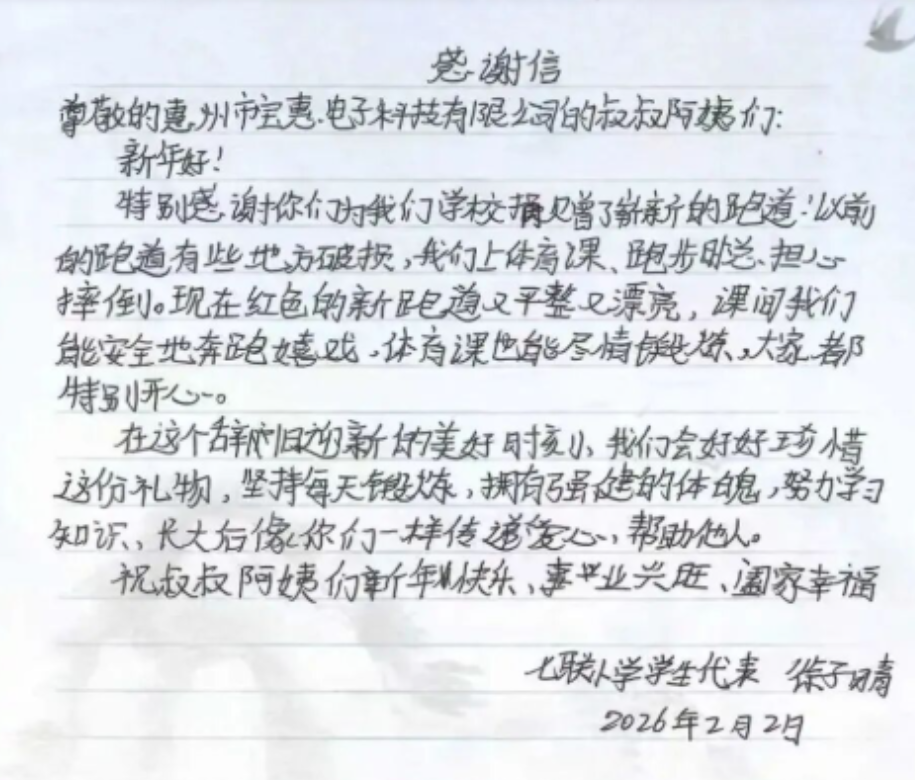 感谢信
尊敬的惠州市宝惠电子科技有限公司的叔叔阿姨们:
新年好!
特别感谢你们为我们学校捐赠了崭新的跑道!以前
的跑道有些地方破损,我们上体育课、跑步时总担心
摔倒。现在红色的新跑道又平整又漂亮,课间我们
能安全地奔跑嬉戏,体育课也能尽情锻炼,大家都
特别开心。
在这个辞旧迎新的美好时刻,我们会好好珍惜
这份礼物,坚持每天锻炼,拥有强健的体魄,努力学习
知识、长大后像你们一样传递爱心,帮助他人。
祝叔叔阿姨们新年快乐、事业兴旺、阖家幸福
七联小学学生代表 徐子晴
2026年2月2日